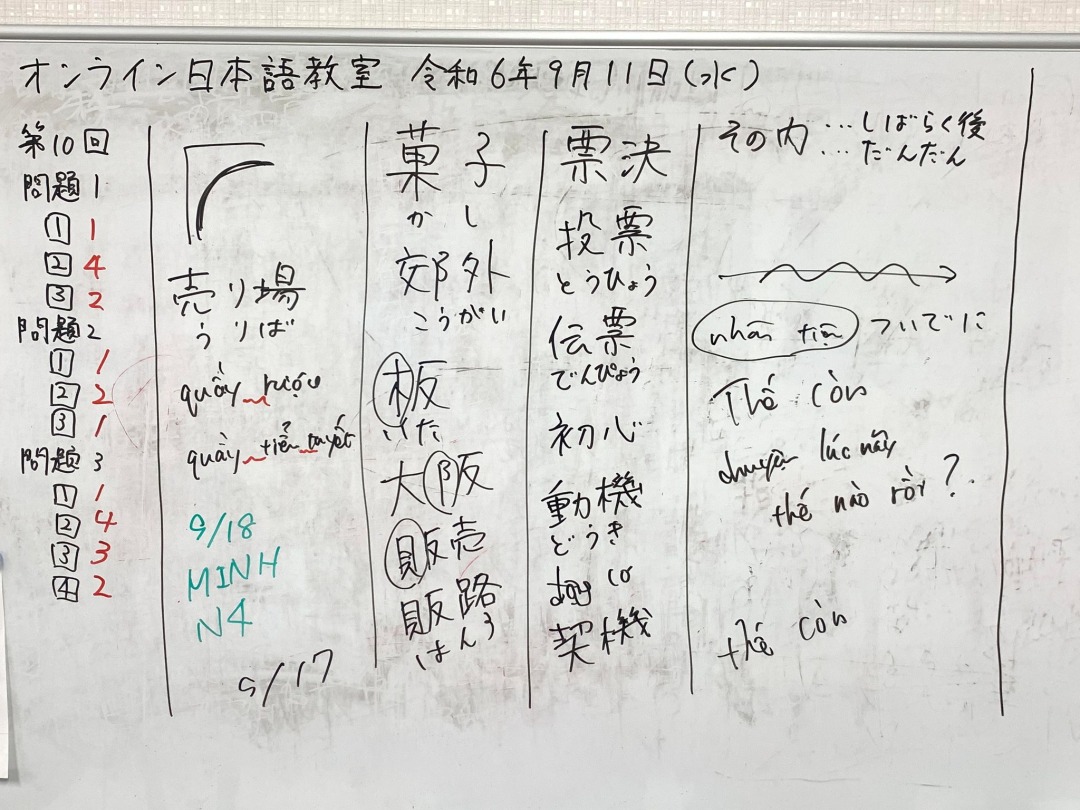 オンライン日本語教室 令和6年9月11日(水)
第10回
問題1
1 1
2 4
3 2
問題2
1 1
2 2
3 1
問題3
1 1
2 4
3 3
4 2
売り場
うりば
quầy rượu
quầy tiểu thuyết
9/18
MINH
N4
9/17
菓子
かし
郊外
こうがい
板
いた
大阪
販売
販路
はんろ
票決
投票
とうひょう
伝票
でんぴょう
初心
動機
どうき
động cơ
契機
その内 …しばらく後
…だんだん
nhân tiện ついでに
Thế còn
chuyện lúc nãy
thế nào rồi?
thế còn